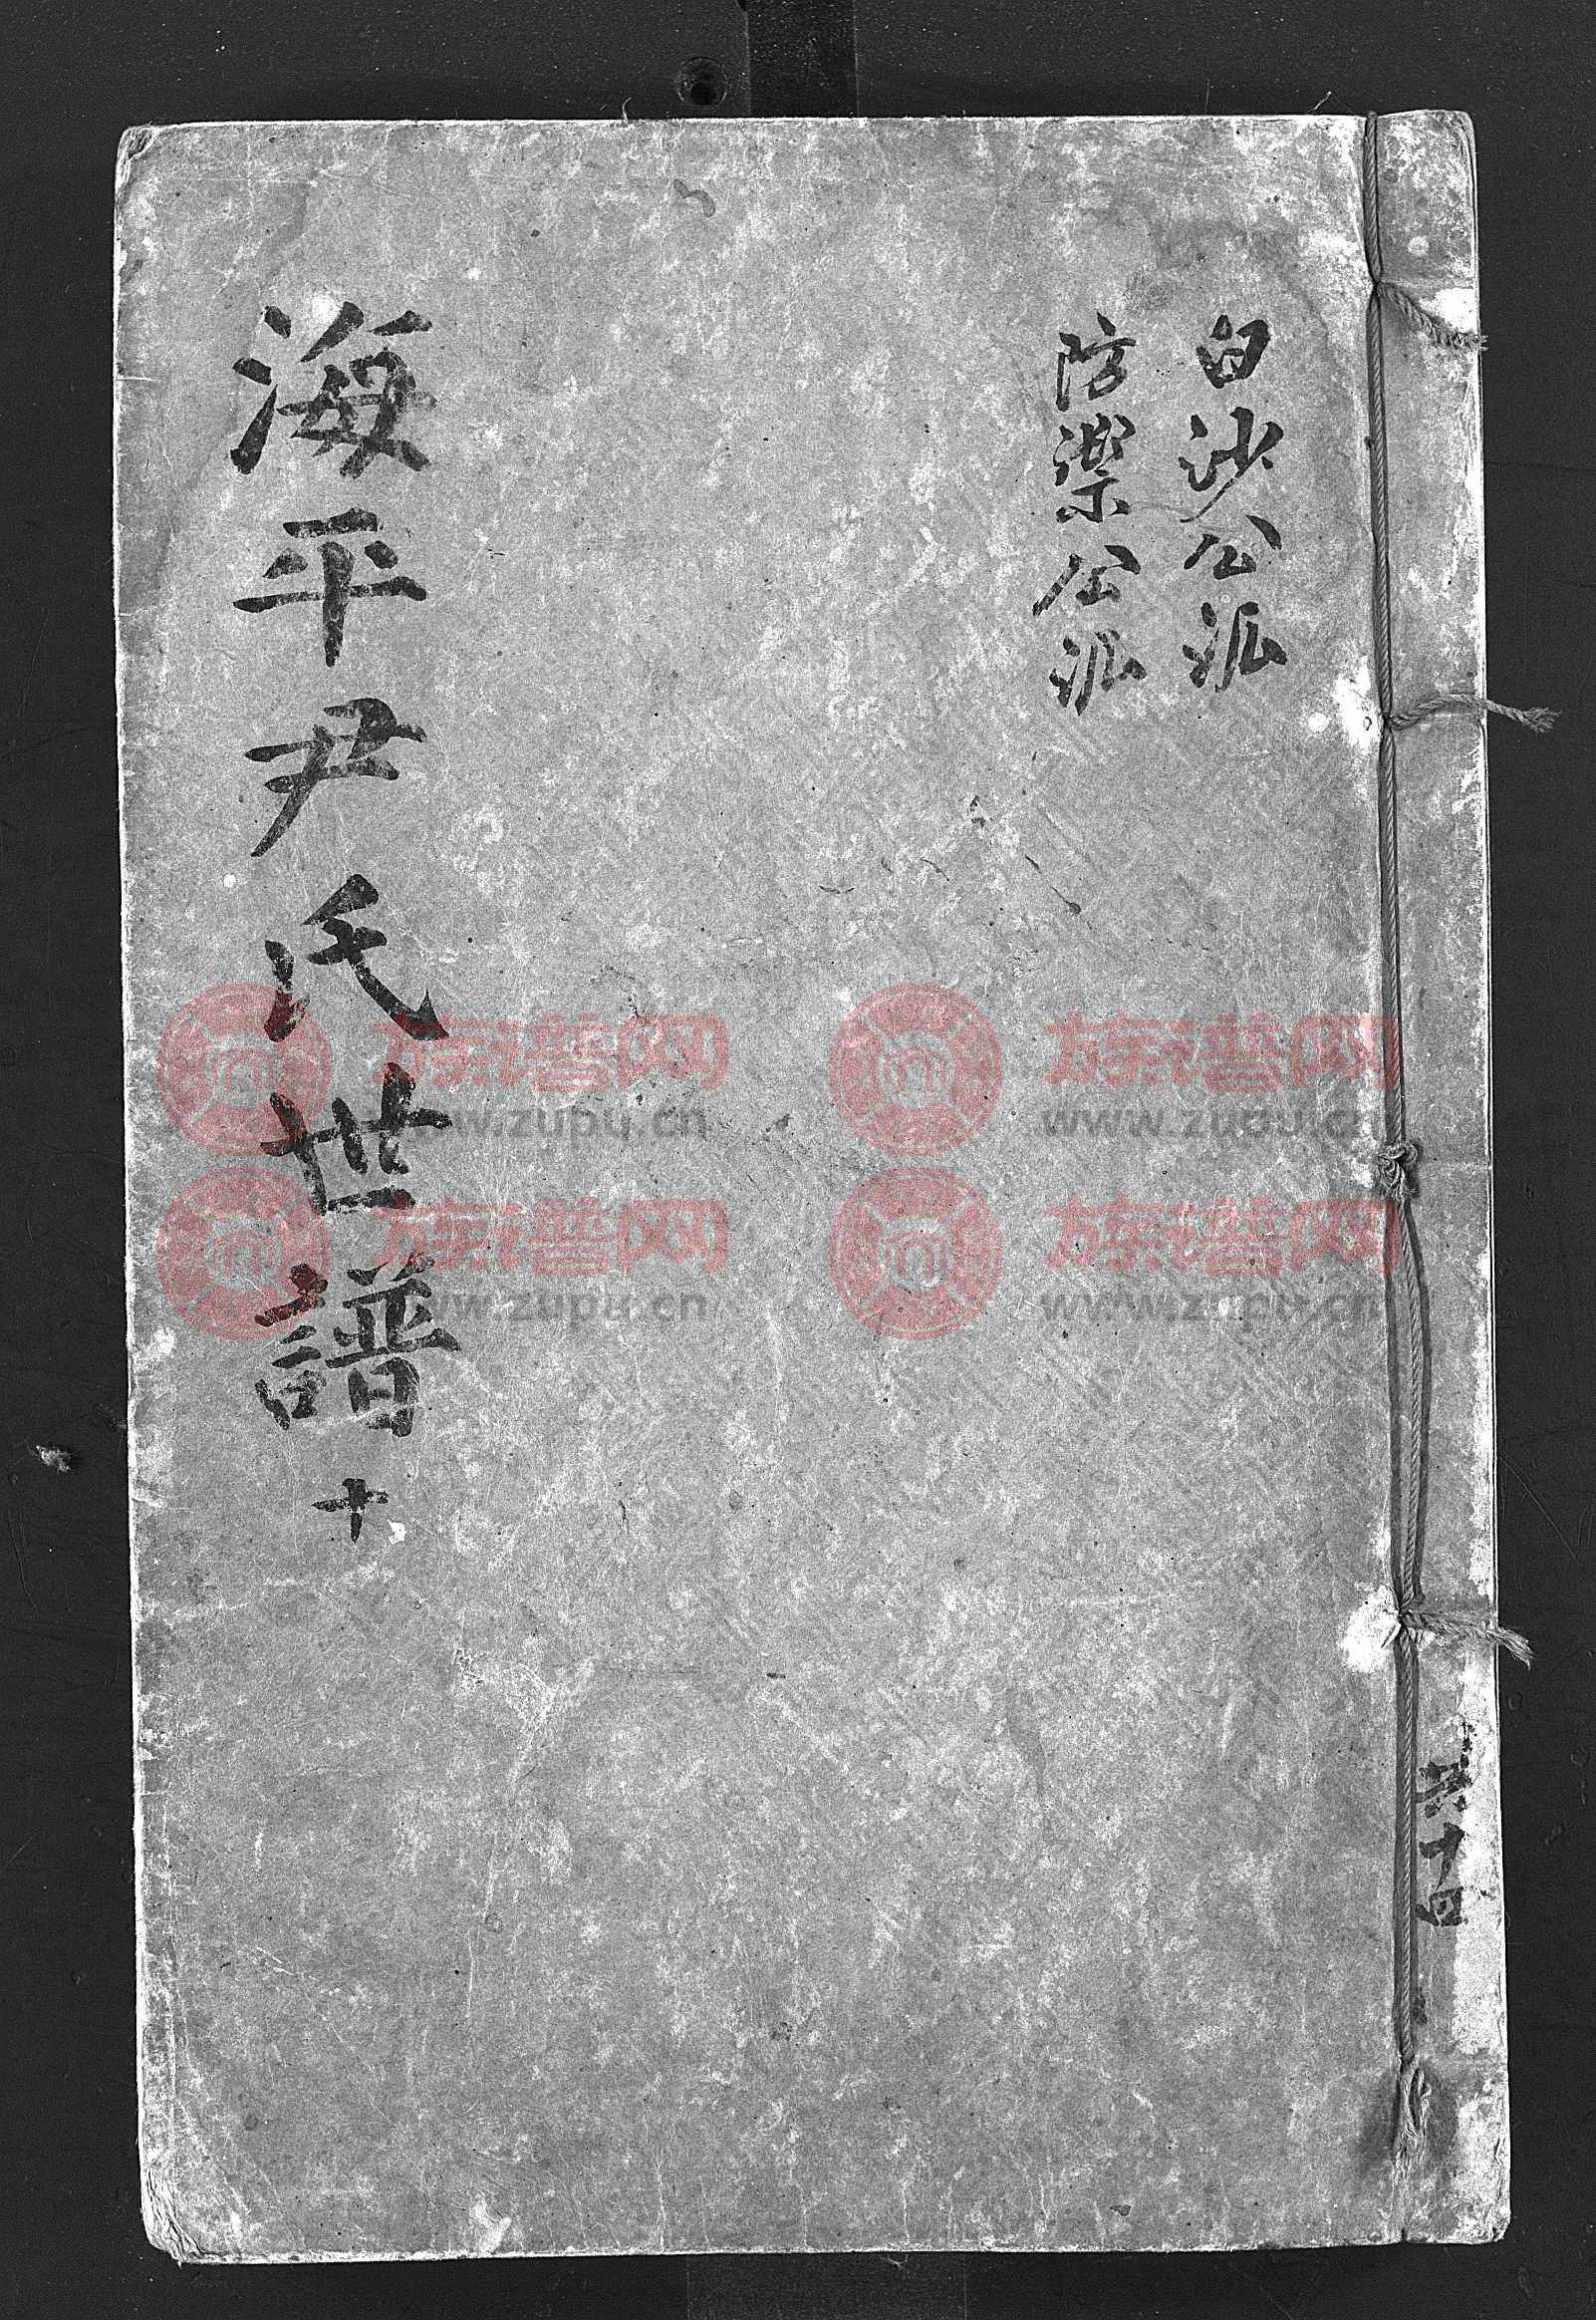 白沙公派
防禦公派
海平尹氏世譜 十
共十四
族谱网
www.zupu.cn
族谱网
www.zupu.cn
族谱网
www.zupu.cn
族谱网
www.zupu.cn